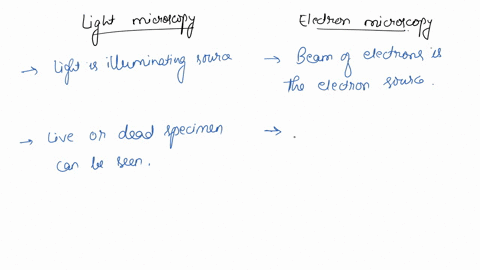 Light microscopy
→ Light is illuminating source
→ Live or dead specimen
can be seen.
Electron microscopy
→ Beam of electrons is
the electron source.
→ .